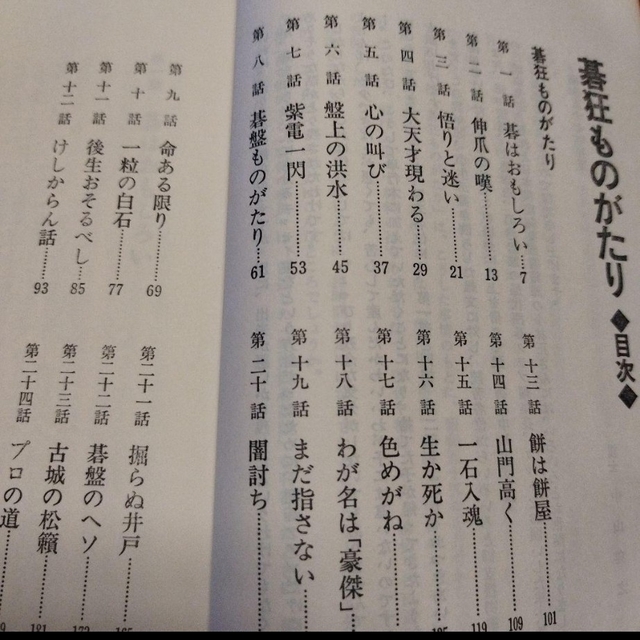 碁狂ものがたり◆目次◆
碁狂ものがたり
第一話 碁はおもしろい……7
第二話 伸爪の嘆……13
第三話 悟りと迷い……21
第四話 大天才現わる……29
第五話 心の叫び……37
第六話 盤上の洪水……45
第七話 紫電一閃……53
第八話 碁盤ものがたり……61
第十三話 餅は餅屋……101
第十四話 山門高く……109
第十五話 一石入魂……119
第十六話 生か死か……
第十七話 色めがね……
第十八話 わが名は「豪傑」……
第十九話 まだ指さない……
第二十話 闇討ち……
第九話 命ある限り……69
第十話 一粒の白石……77
第十一話 後生おそるべし……85
第十二話 けしからん話……93
第二十一話 掘らぬ井戸……
第二十二話 碁盤のヘソ……
第二十三話 古城の松籟……181
第二十四話 プロの道……